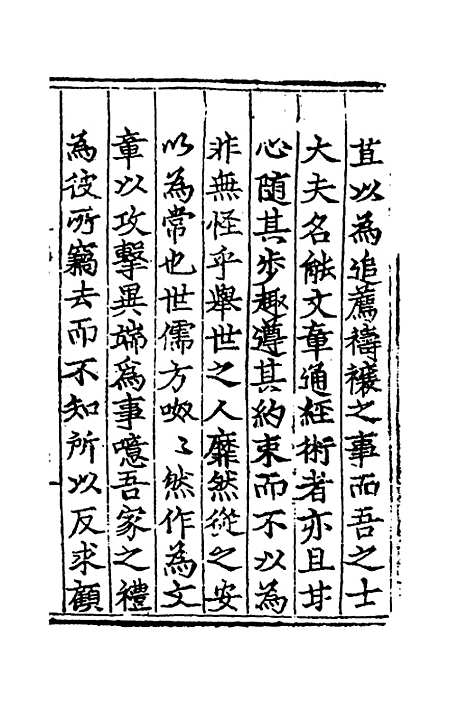 苴以為追薦禱禳之事而吾之士
大夫名能文章通經術者亦且甘
心隨其步趣遵其約束而不以為
非無怪乎舉世之人靡然從之安
以為常也世儒方呶〻然作為文
章以攻擊異端為事噫吾家之禮
為彼所竊去而不知所以反求顧